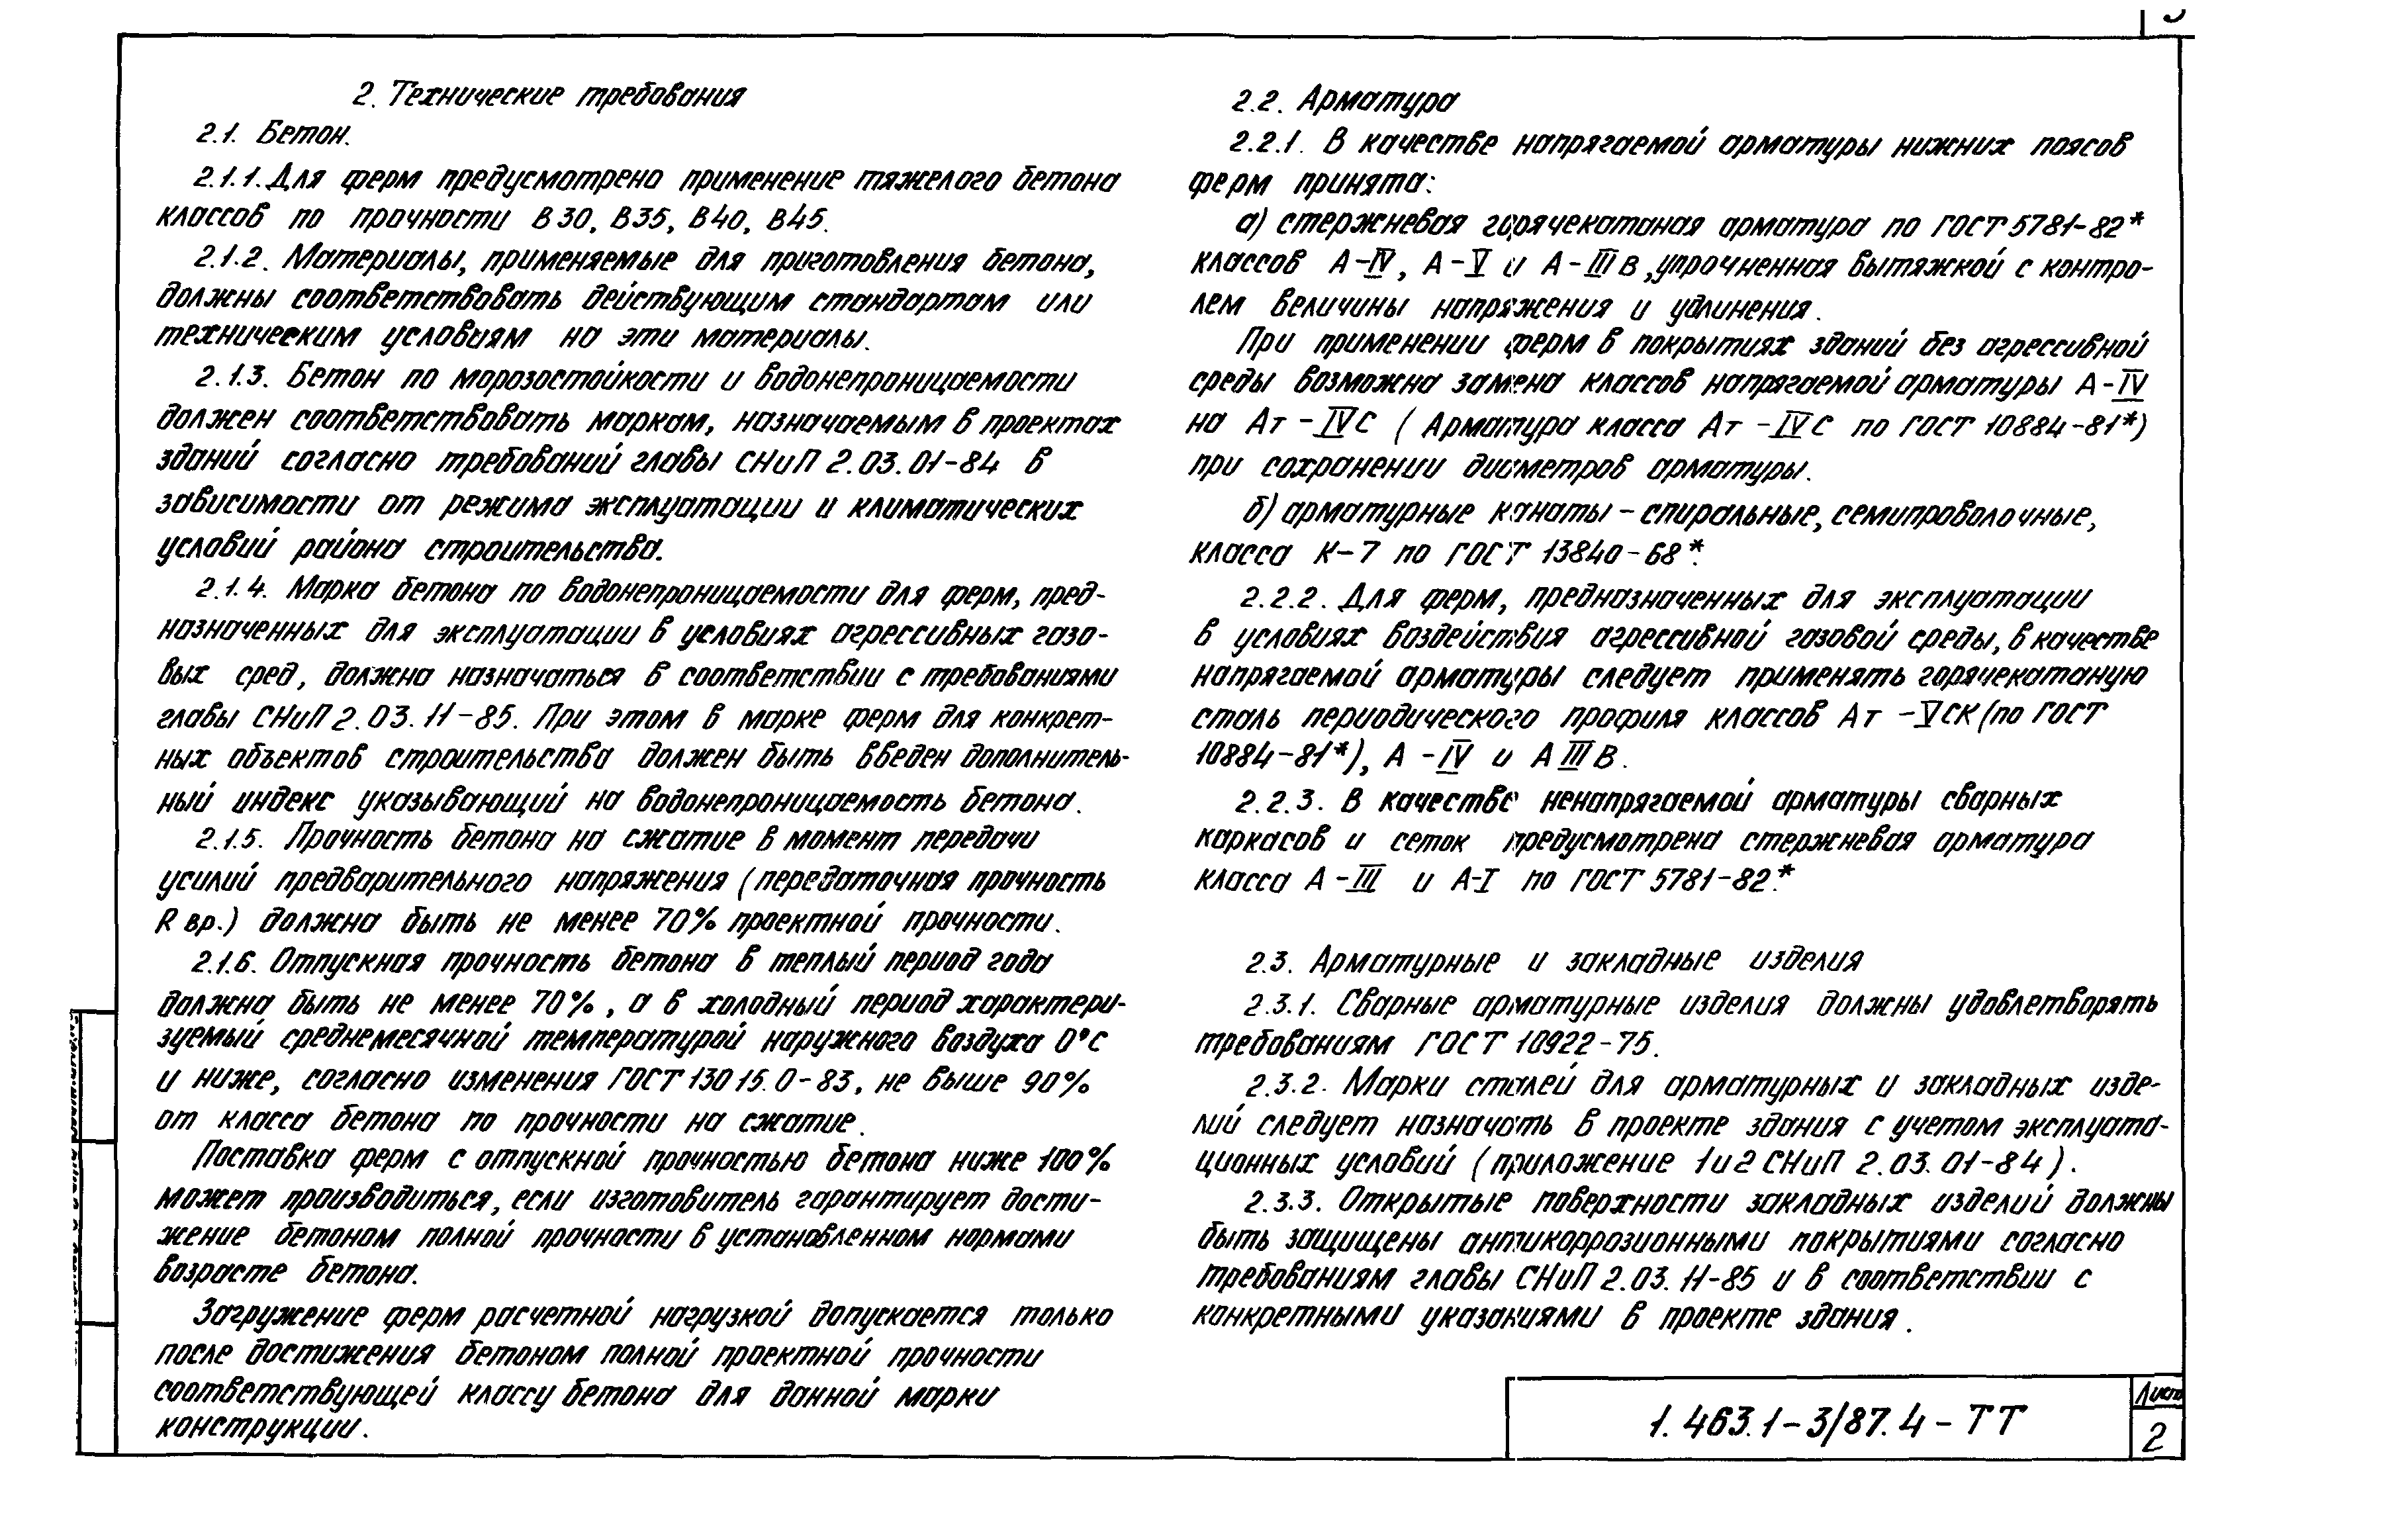 2. Технические требования
2.1. Бетон.
2.1.1. Для ферм предусмотрено применение тяжелого бетона
классов по прочности В30, В35, В40, В45.
2.1.2. Материалы, применяемые для приготовления бетона,
должны соответствовать действующим стандартам или
техническим условиям на эти материалы.
2.1.3. Бетон по морозостойкости и водонепроницаемости
должен соответствовать маркам, назначаемым в проектах
зданий согласно требований главы СНиП 2.03.01-84 в
зависимости от режима эксплуатации и климатических
условий района строительства.
2.1.4. Марка бетона по водонепроницаемости для ферм, пред-
назначенных для эксплуатации в условиях агрессивных газо-
вых сред, должна назначаться в соответствии с требованиями
главы СНиП 2.03.11-85. При этом в марке ферм для конкрет-
ных объектов строительства должен быть введен дополнитель-
ный индекс указывающий на водонепроницаемость бетона.
2.1.5. Прочность бетона на сжатие в момент передачи
усилий предварительного напряжения (передаточная прочность
R вр.) должна быть не менее 70% проектной прочности.
2.1.6. Отпускная прочность бетона в теплый период года
должна быть не менее 70%, а в холодный период характери-
зуемый среднемесячной температурой наружного воздуха 0°С
и ниже, согласно изменения ГОСТ 13015.0-83, не выше 90%
от класса бетона по прочности на сжатие.
Поставка ферм с отпускной прочностью бетона ниже 100%
может производиться, если изготовитель гарантирует дости-
жение бетоном полной прочности в установленном нормами
возрасте бетона.
Загружение ферм расчетной нагрузкой допускается только
после достижения бетоном полной проектной прочности
соответствующей классу бетона для данной марки
конструкции.
2.2. Арматура
2.2.1. В качестве напрягаемой арматуры нижних поясов
ферм принята:
а) стержневая горячекатаная арматура по ГОСТ 5781-82*
классов А-IV, А-V и А-IIIв, упрочненная вытяжкой с контро-
лем величины напряжения и удлинения.
При применении ферм в покрытиях зданий без агрессивной
среды возможна замена классов напрягаемой арматуры А-IV
на Ат-IVС (Арматура класса Ат-IVС по ГОСТ 10884-81*)
при сохранении диаметров арматуры.
б) арматурные канаты - спиральные, семипроволочные,
класса К-7 по ГОСТ 13840-68*.
2.2.2. Для ферм, предназначенных для эксплуатации
в условиях воздействия агрессивной газовой среды, в качестве
напрягаемой арматуры следует применять горячекатаную
сталь периодического профиля классов Ат-VСК (по ГОСТ
10884-81*), А-IV и АIIIВ.
2.2.3. В качестве ненапрягаемой арматуры сварных
каркасов и сеток предусмотрена стержневая арматура
класса А-III и А-I по ГОСТ 5781-82.*
2.3. Арматурные и закладные изделия
2.3.1. Сварные арматурные изделия должны удовлетворять
требованиям ГОСТ 10922-75.
2.3.2. Марки сталей для арматурных и закладных изде-
лий следует назначать в проекте здания с учетом эксплуата-
ционных условий (приложение 1 и 2 СНиП 2.03.01-84).
2.3.3. Открытые поверхности закладных изделий должны
быть защищены антикоррозионными покрытиями согласно
требованиям главы СНиП 2.03.11-85 и в соответствии с
конкретными указаниями в проекте здания.
1.463.1-3/87.4-ТТ
Лист
2